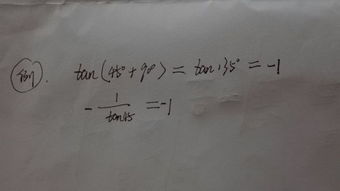 例1. tan(45°+90°)=tan135°=-1
-1/tan45=-1